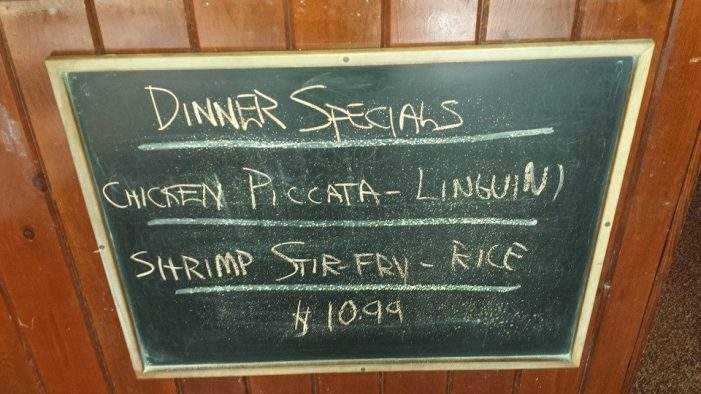 DINNER SPECIALS
CHICKEN PICCATA - LINGUINI
SHRIMP STIR-FRY - RICE
$10.99